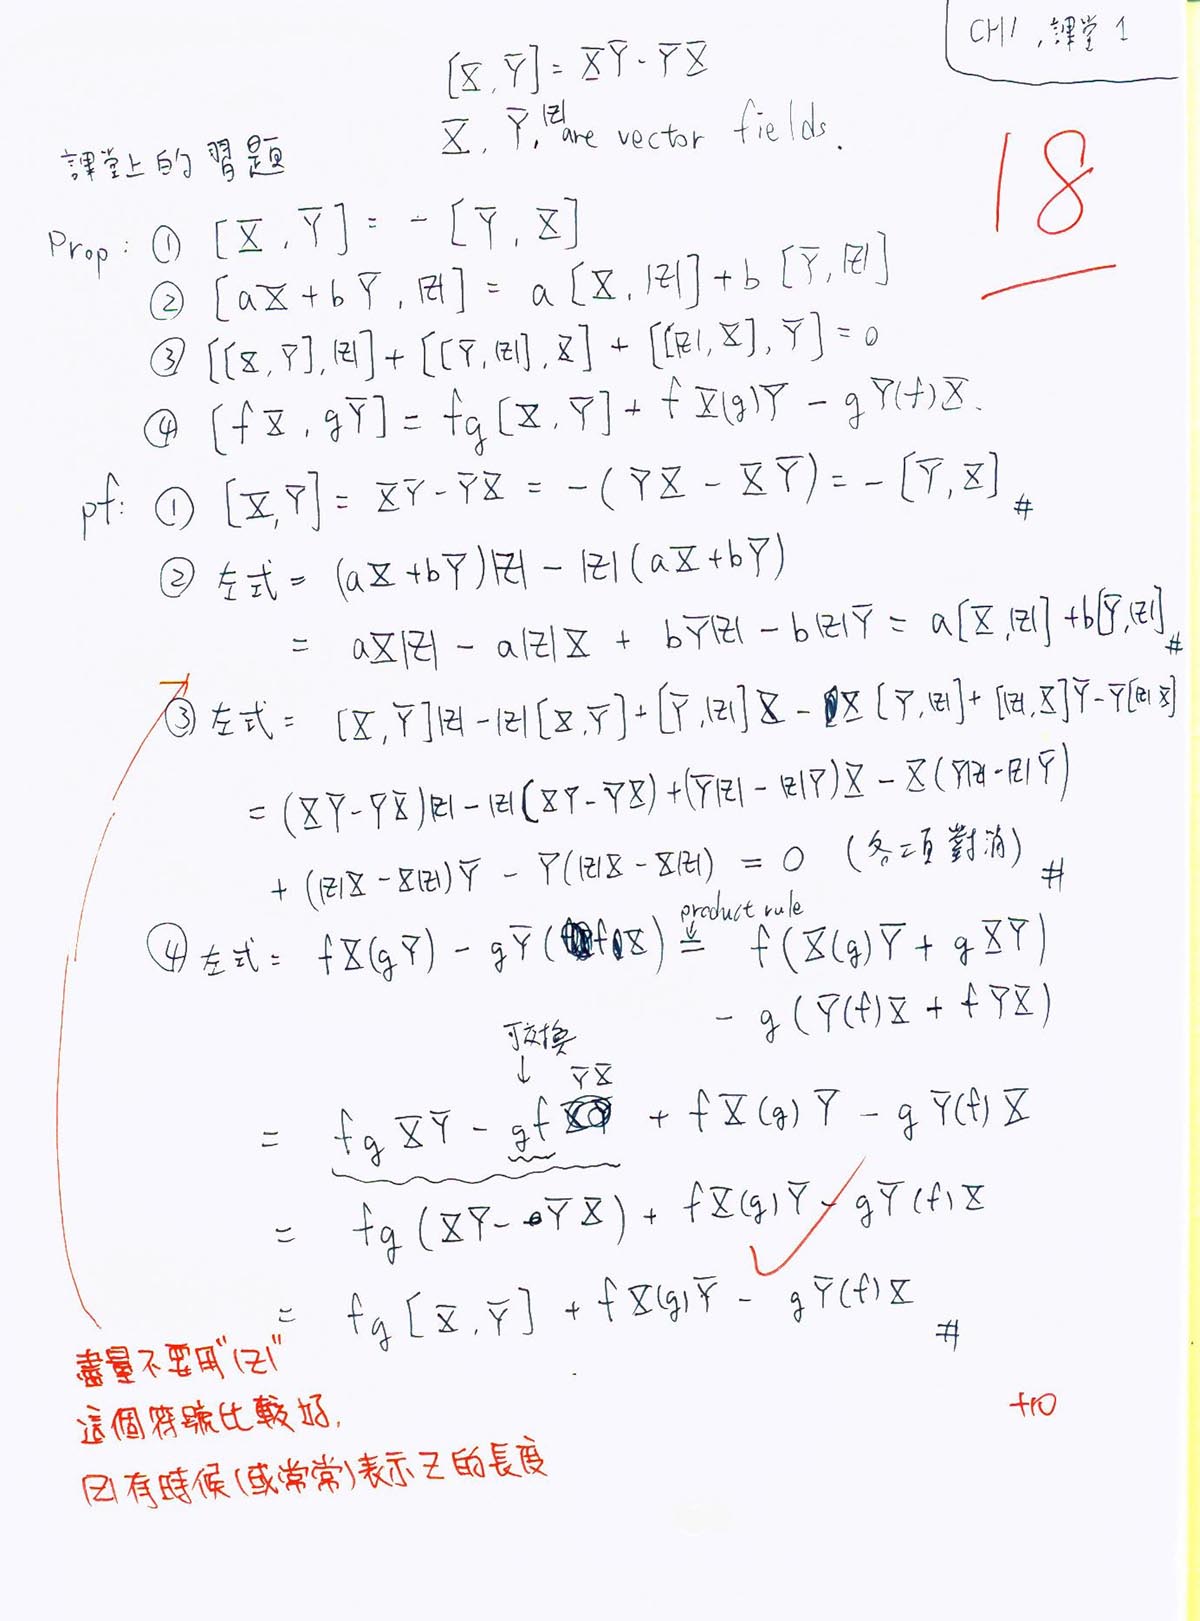 CH1,課堂1
[X,Y]=XY-YX
X,Y,|Z| are vector fields.
18
課堂上的習題
Prop: ① [X,Y]=-[Y,X]
② [aX+bY,|Z|]=a[X,|Z|]+b[Y,|Z|]
③ [[X,Y],|Z|]+[[Y,|Z|],X]+[[|Z|,X],Y]=0
④ [fX,gY]=fg[X,Y]+fX(g)Y-gY(f)X.
pf: ① [X,Y]=XY-YX=-(YX-XY)=-[Y,X] #
② 左式=(aX+bY)|Z|-|Z|(aX+bY)
=aX|Z|-a|Z|X+bY|Z|-b|Z|Y=a[X,|Z|]+b[Y,|Z|] #
③ 左式=[X,Y]|Z|-|Z|[X,Y]+[Y,|Z|]X-X[Y,|Z|]+[|Z|,X]Y-Y[|Z|X]
=(XY-YX)|Z|-|Z|(XY-YX)+(Y|Z|-|Z|Y)X-X(Y|Z|-|Z|Y)
+(|Z|X-X|Z|)Y-Y(|Z|X-X|Z|)=0 (各項對消) #
product rule
④ 左式=fX(gY)-gY(fX)=f(X(g)Y+gXY)
-g(Y(f)X+fYX)
可交換
↓ YX
=fgXY-gf+fX(g)Y-gY(f)X
=fg(XY-YX)+fX(g)Y-gY(f)X
=fg[X,Y]+fX(g)Y-gY(f)X #
盡量不要用"|Z|"
這個符號比較好,
|Z|有時候(或常常)表示Z的長度
+10